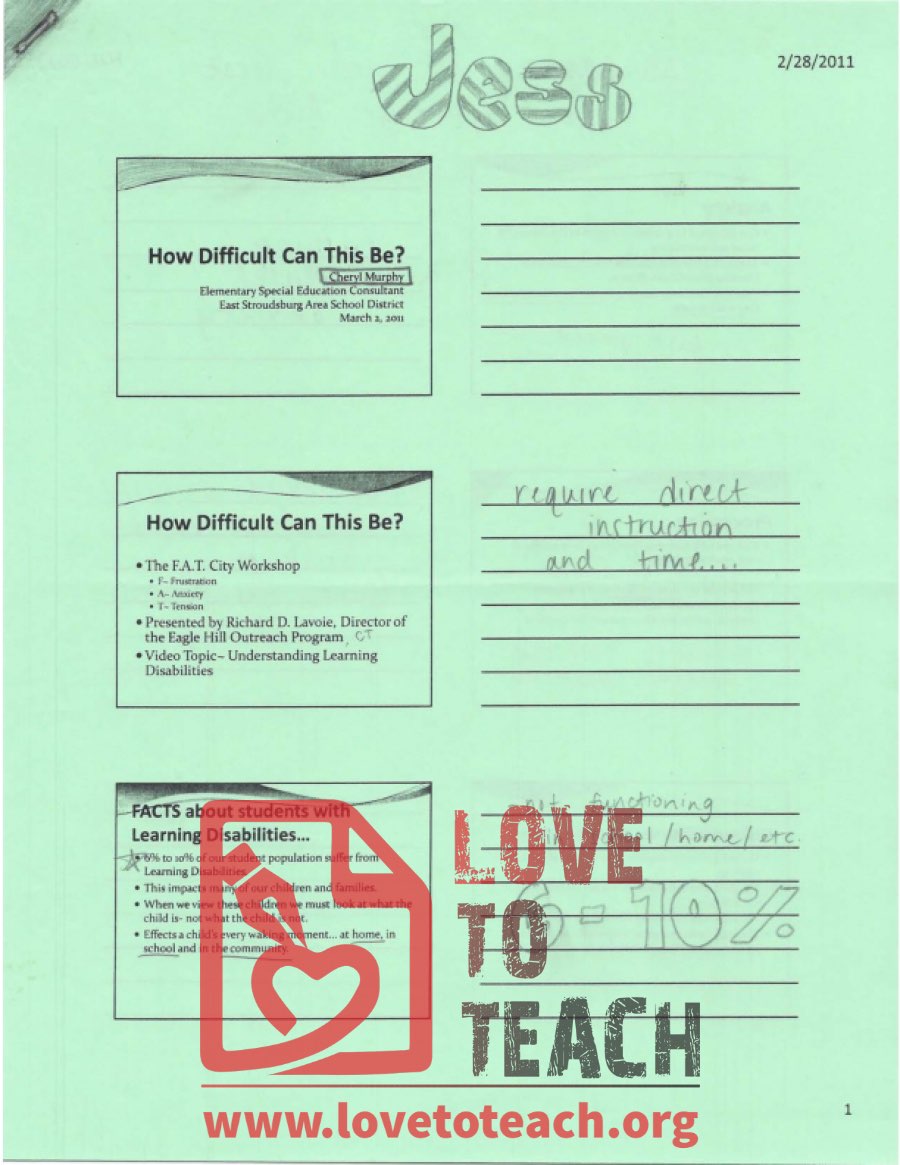 Jess
2/28/2011
How Difficult Can This Be?
Cheryl Murphy
Elementary Special Education Consultant
East Stroudsburg Area School District
March 2, 2011
How Difficult Can This Be?
• The F.A.T. City Workshop
• F– Frustration
• A– Anxiety
• T– Tension
• Presented by Richard D. Lavoie, Director of
the Eagle Hill Outreach Program, CT
• Video Topic– Understanding Learning
Disabilities
require direct
instruction
and time....
FACTS about students with
Learning Disabilities...
• 6% to 10% of our student population suffer from
Learning Disabilities.
• This impacts many of our children and families.
• When we view these children we must look at what the
child is- not what the child is not.
• Effects a child's every waking moment... at home, in
school and in the community.
not functioning
in school / home / etc.
6-10%
LOVE
TO
TEACH
www.lovetoteach.org
1